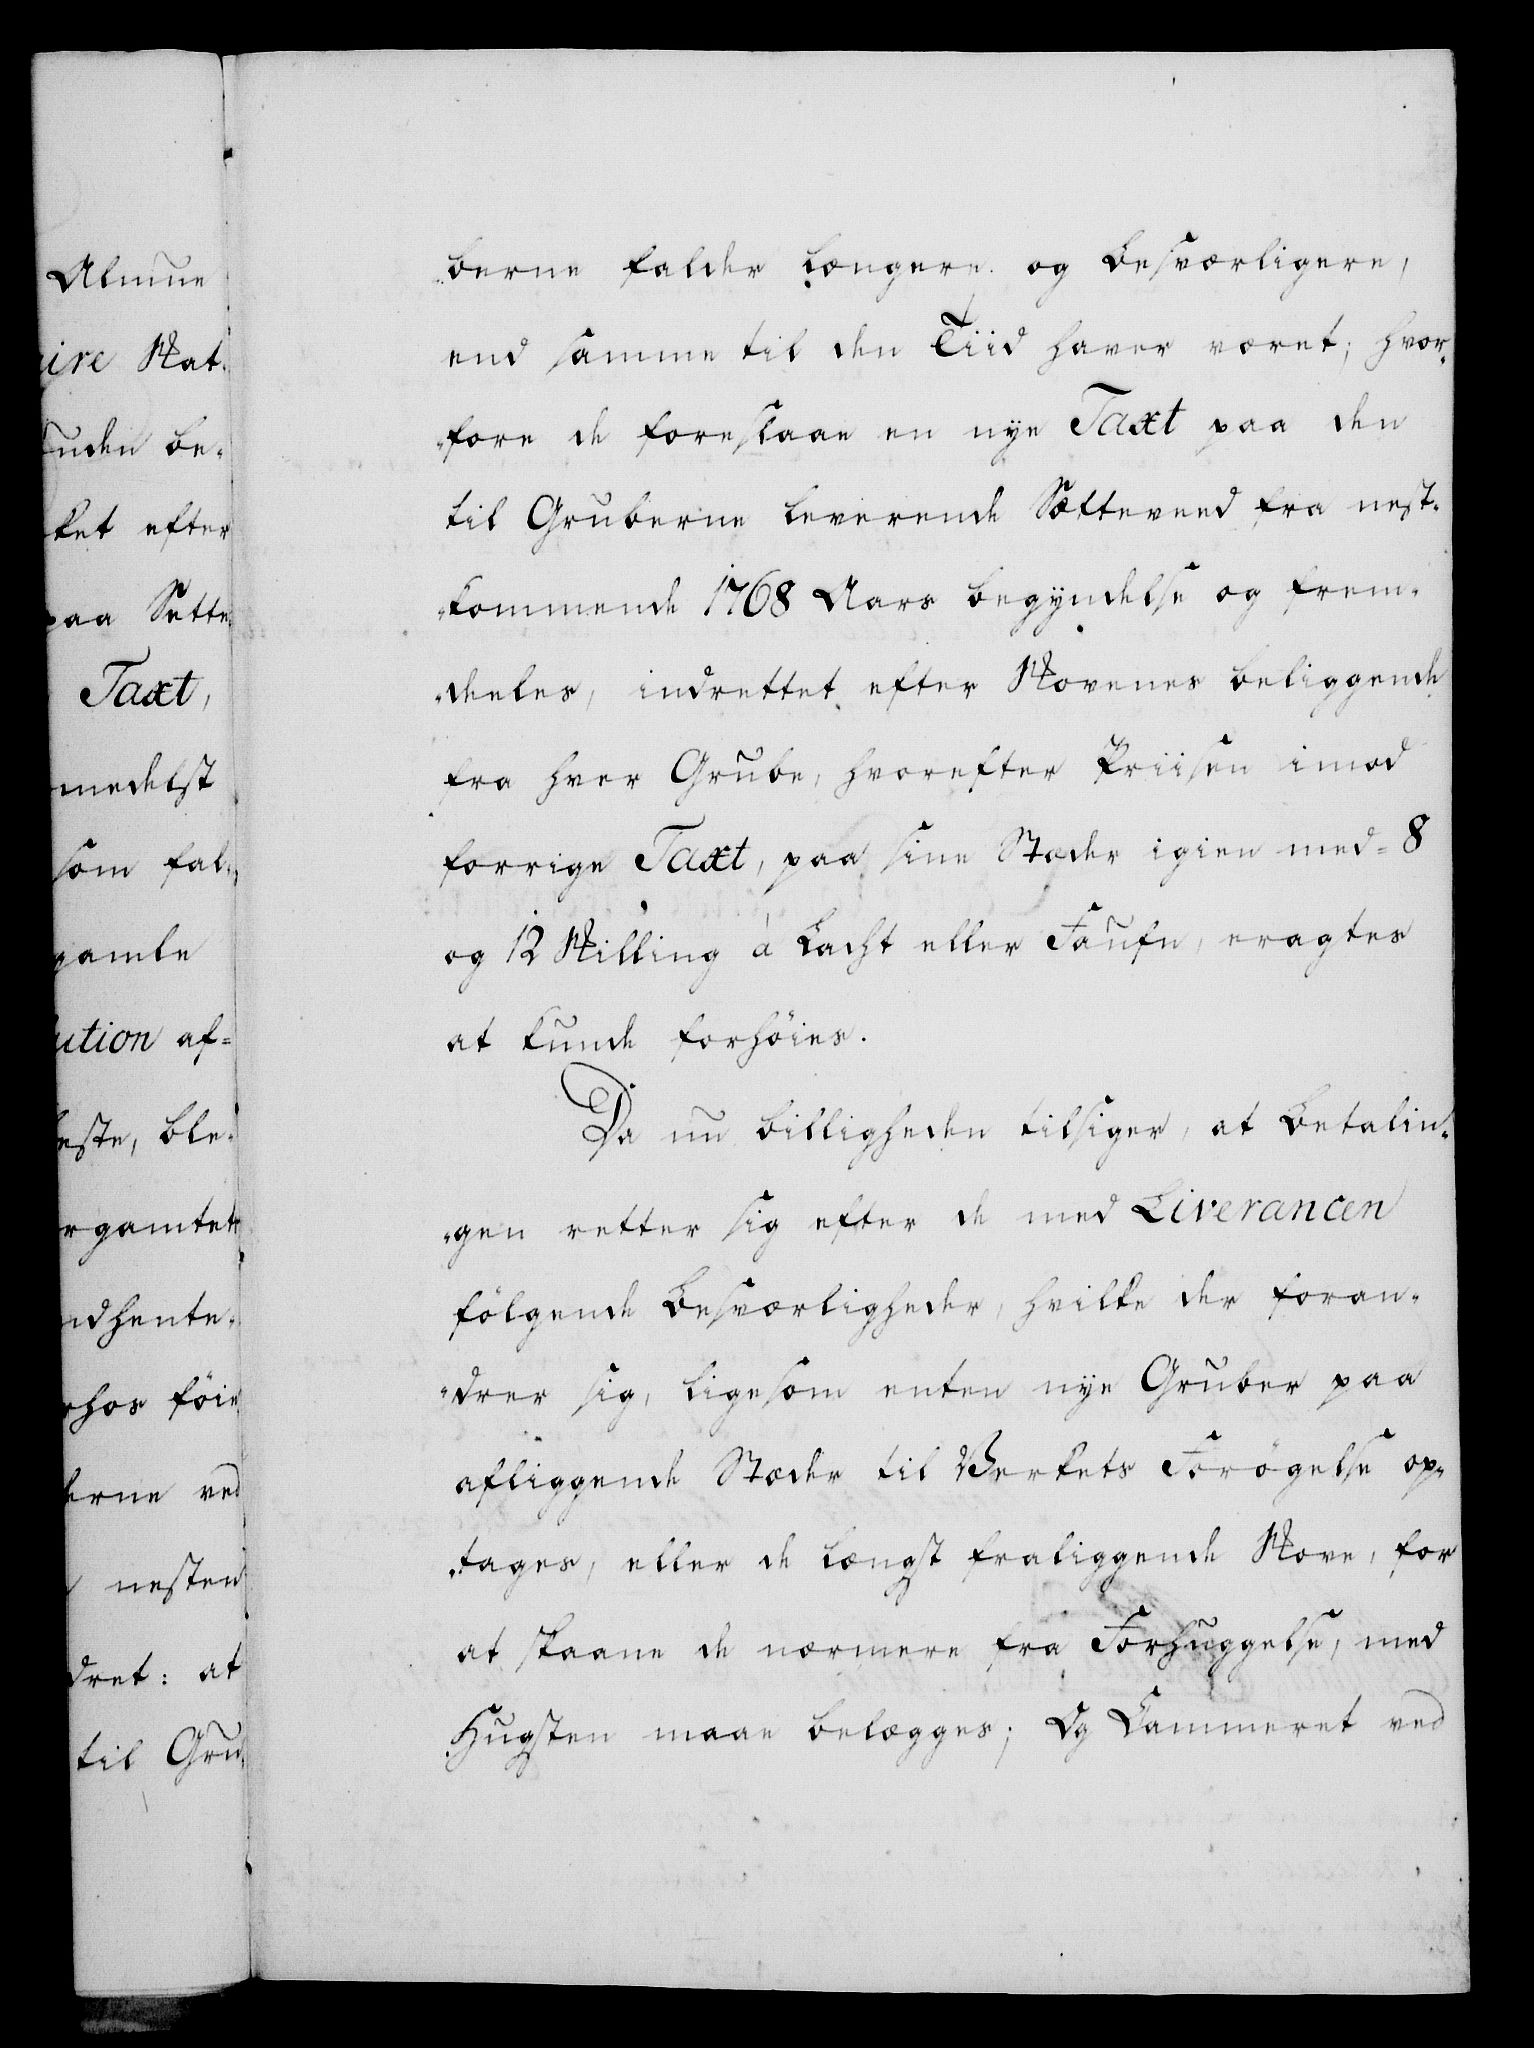 Almue
ire Skat-
uden be-
ket efter
paa Sette
Taxt,
medelst
som fal-
gamle
ution af-
este, ble-
rgamtet
ndhente-
hos föie
erne ved
nesten
dret: at
til Gru-
berne falder længere og besværligere,
end samme til den Tiid haver været; hvor-
fore de foreslaae en nye Taxt paa den
til Gruberne leverende Sætteveed fra nest-
kommende 1768 Aars begyndelse og frem-
deeles, indrettet efter Skovenes beliggende
fra hver Grube, hvorefter Priisen imod
forrige Taxt, paa sine Stæder igien med= 8
og 12 Skilling à Lacht eller Faufn, eragtes
at kunde forhöies.
Da nu billigheden tilsiger, at Betalin-
gen retter sig efter de med Liverancen
fölgende Besværligheder, hvilke der foran-
drer sig, ligesom enten nye Gruber paa
afliggende Stæder til Verkets Forögelse op-
tages, eller de længst fraliggende Skove, for
at skaane de nærmere fra Forhuggelse, med
Hugsten maae belægges; Og Cammeret ved